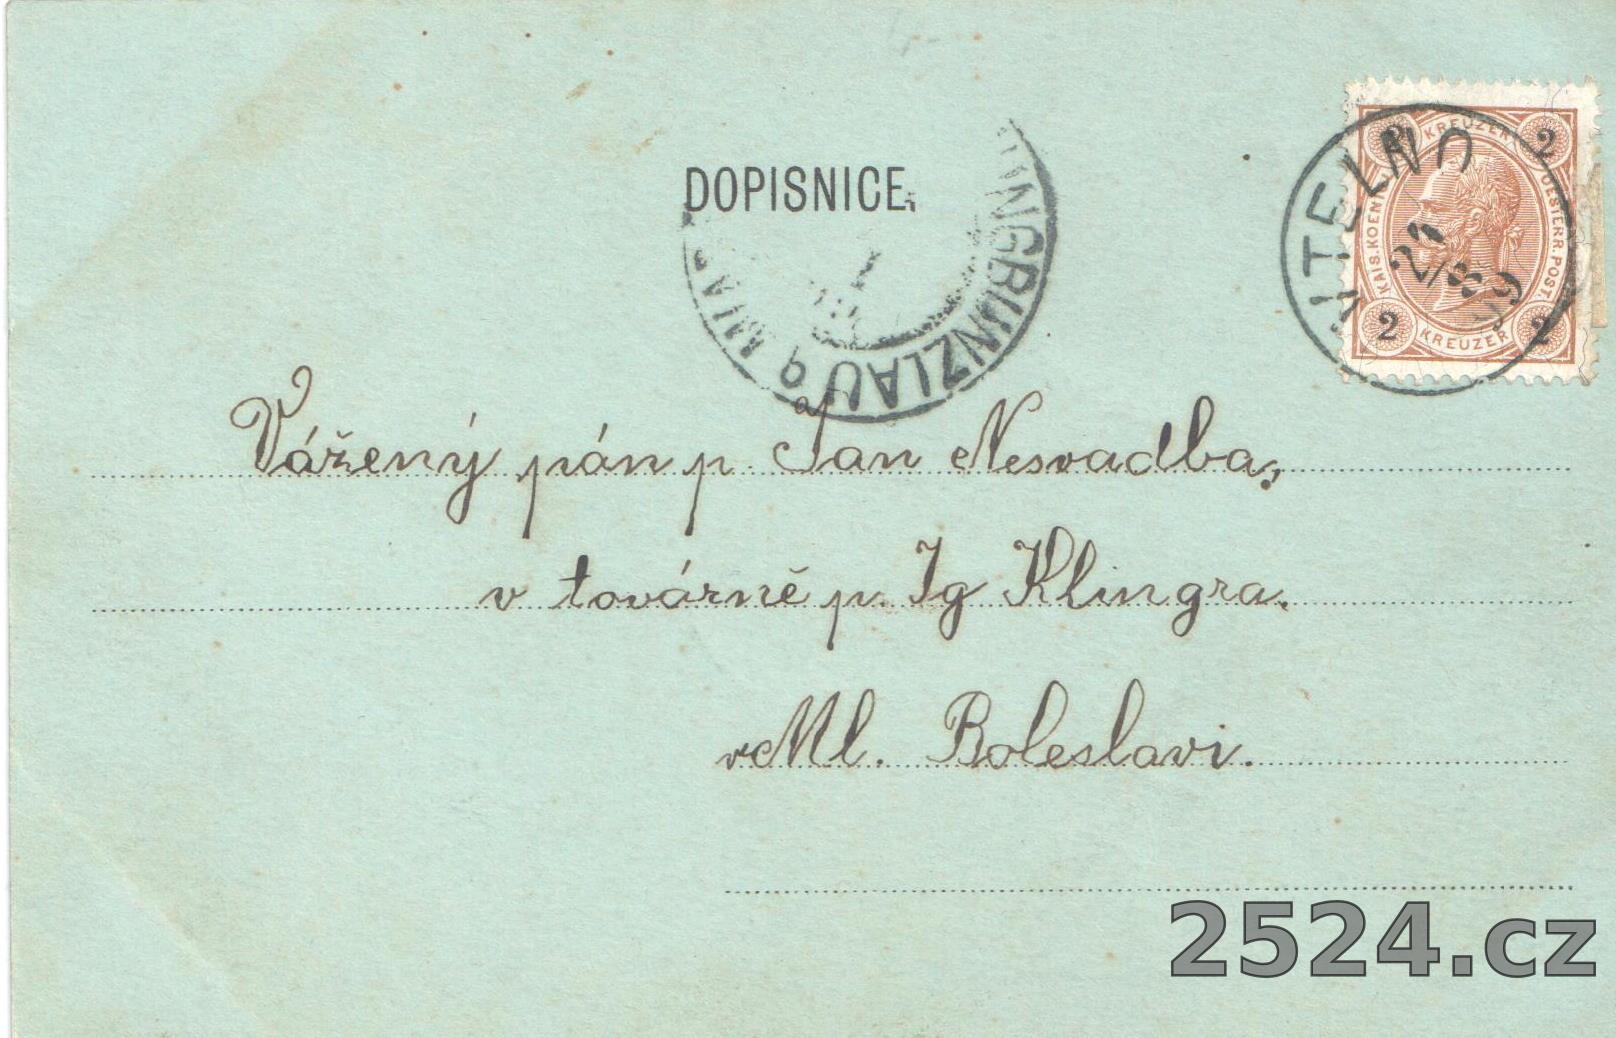 DOPISNICE.
KREUZER
2 2
KAIS. KOENIGL. OESTERR. POST.
2 2
KREUZER
KTELNO
27/8 99
JUNGBUNZLAU
Vážený pán p. Jan Nesvadba,
v továrně p. Ig Klingra.
v Ml. Boleslavi.
2524.cz